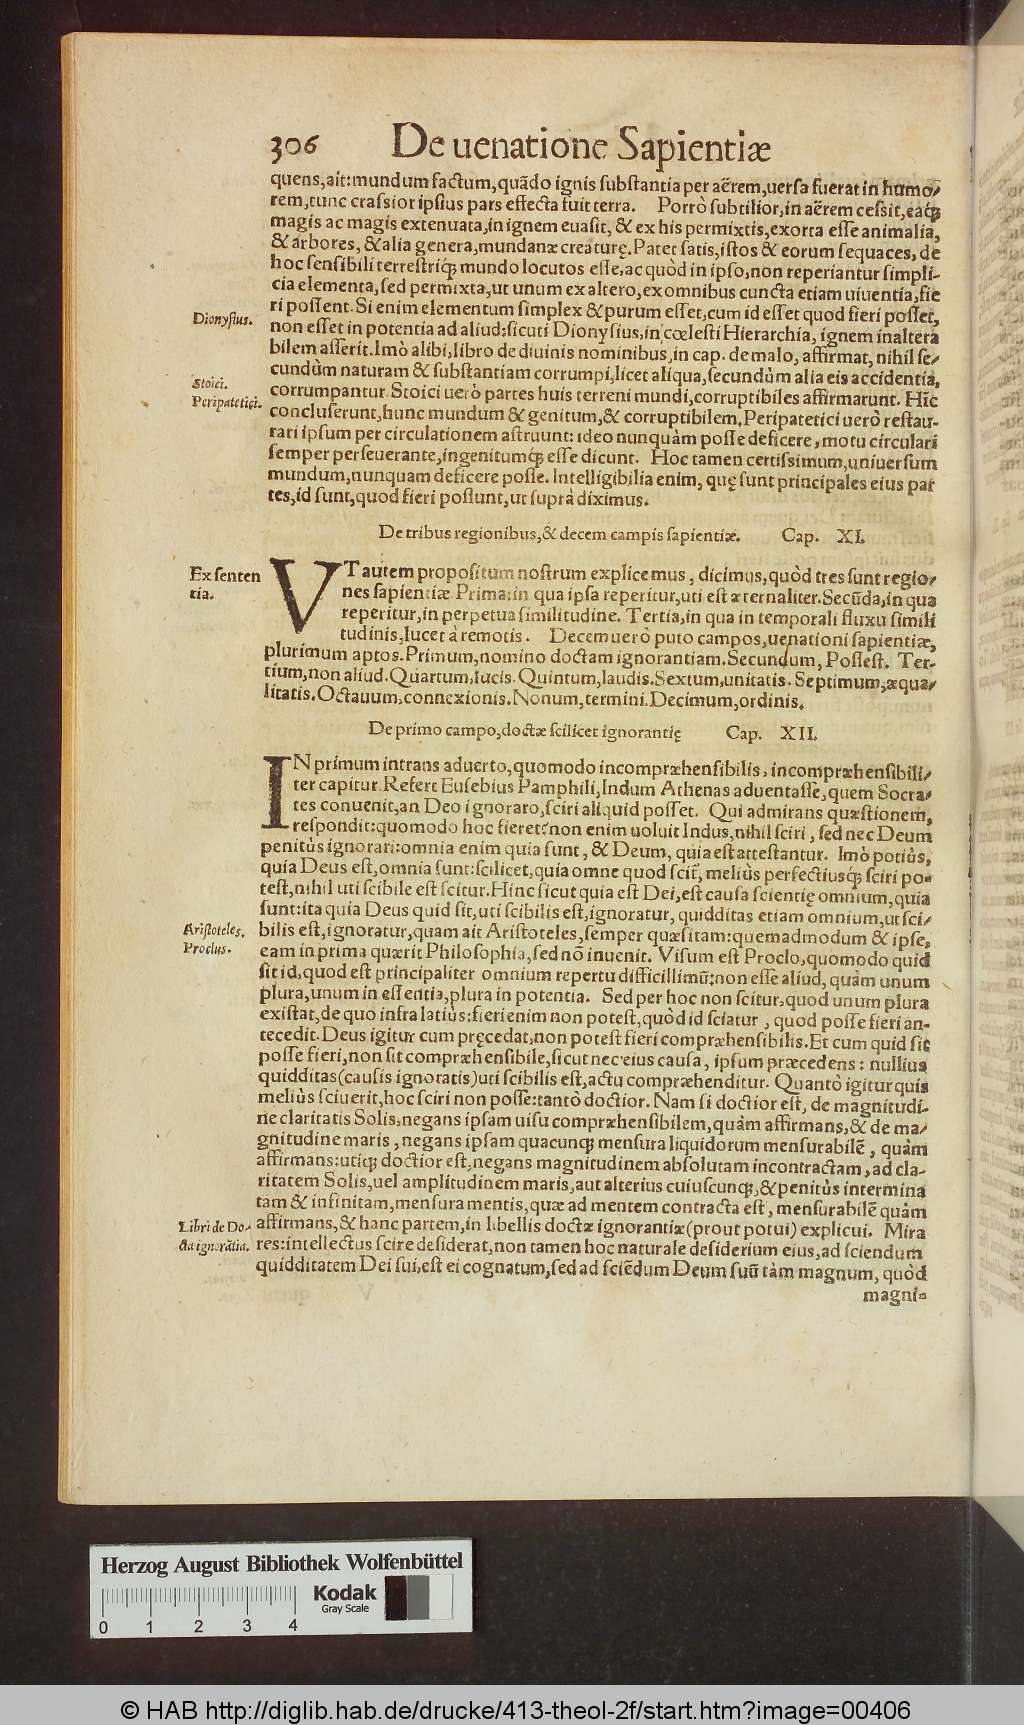 306 De uenatione Sapientiæ
quens, ait: mundum factum, quãdo ignis substantia per aërem, uersa fuerat in humo-
rem, tunc crassior ipsius pars effecta fuit terra. Porrò subtilior, in aërem cessit, eaq́;
magis ac magis extenuata, in ignem euasit, & ex his permixtis, exorta esse animalia,
& arbores, & alia genera, mundanæ creaturę. Patet satis, istos & eorum sequaces, de
hoc sensibili terrestriq́; mundo locutos esse, ac quòd in ipso, non reperiantur simpli-
cia elementa, sed permixta, ut unum ex altero, ex omnibus cuncta etiam uiuentia, fie
ri possent. Si enim elementum simplex & purum esset, cum id esset quod fieri posset,
Dionysius.
non esset in potentia ad aliud: sicuti Dionysius, in cœlesti Hierarchia, ignem inaltera
bilem asserit. Imò alibi, libro de diuinis nominibus, in cap. de malo, affirmat, nihil se-
cundùm naturam & substantiam corrumpi, licet aliqua, secundùm alia eis accidentia,
Stoici.
Peripatetici.
corrumpantur. Stoici uerò partes huis terreni mundi, corruptibiles affirmarunt. Hic
concluserunt, hunc mundum & genitum, & corruptibilem. Peripatetici uerò restau-
rari ipsum per circulationem astruunt: ideo nunquàm posse deficere, motu circulari
semper perseuerante, ingenitumq́; esse dicunt. Hoc tamen certissimum, uniuersum
mundum, nunquam deficere posse. Intelligibilia enim, quę sunt principales eius par
tes, id sunt, quod fieri possunt, ut suprà diximus.
De tribus regionibus, & decem campis sapientiæ. Cap. XI.
Ex senten
tia.
VT autem propositum nostrum explicemus, dicimus, quòd tres sunt regio-
nes sapientiæ Prima: in qua ipsa reperitur, uti est æternaliter. Secũda, in qua
reperitur, in perpetua similitudine. Tertia, in qua in temporali fluxu simili
tudinis, lucet à remotis. Decem uerò puto campos, uenationi sapientiæ,
plurimum aptos. Primum, nomino doctam ignorantiam. Secundum, Possest. Ter-
tium, non aliud. Quartum, lucis. Quintum, laudis. Sextum, unitatis. Septimum, æqua-
litatis. Octauum, connexionis. Nonum, termini. Decimum, ordinis.
De primo campo, doctæ scilicet ignorantię Cap. XII.
IN primum intrans aduerto, quomodo incompræhensibilis, incompræhensibili-
ter capitur. Refert Eusebius Pamphili, Indum Athenas aduentasse, quem Socra-
tes conuenit, an Deo ignorato, sciri aliquid posset. Qui admirans quæstionem,
respondit: quomodo hoc fieret? non enim uoluit Indus, nihil sciri, sed nec Deum
penitùs ignorari: omnia enim quia sunt, & Deum, quia est attestantur. Imò potiùs,
quia Deus est, omnia sunt: scilicet, quia omne quod scit̃, meliùs perfectiusq́; sciri po-
test, nihil uti scibile est scitur. Hinc sicut quia est Dei, est causa scientię omnium, quia
sunt: ita quia Deus quid sit, uti scibilis est, ignoratur, quidditas etiam omnium, ut sci-
Aristoteles.
Proclus.
bilis est, ignoratur, quam ait Aristoteles, semper quæsitam: quemadmodum & ipse,
eam in prima quærit Philosophia, sed nõ inuenit. Visum est Proclo, quomodo quid
sit id, quod est principaliter omnium repertu difficillimũ: non esse aliud, quàm unum
plura, unum in essentia, plura in potentia. Sed per hoc non scitur, quod unum plura
existat, de quo infra latiùs: fieri enim non potest, quòd id sciatur, quod posse fieri an-
tecedit. Deus igitur cum pręcedat, non potest fieri compræhensibilis. Et cum quid sit
posse fieri, non sit compræhensibile, sicut nec eius causa, ipsum præcedens: nullius
quidditas (causis ignoratis) uti scibilis est, actu compræhenditur. Quantò igitur quis
meliùs sciuerit, hoc sciri non posse: tantò doctior. Nam si doctior est, de magnitudi-
ne claritatis Solis, negans ipsam uisu compræhensibilem, quàm affirmans, & de ma-
gnitudine maris, negans ipsam quacunq; mensura liquidorum mensurabilẽ, quàm
affirmans: utiq; doctior est, negans magnitudinem absolutam incontractam, ad cla-
ritatem Solis, uel amplitudinem maris, aut alterius cuiuscunq;, & penitùs intermina
tam & infinitam, mensura mentis, quæ ad mentem contracta est, mensurabilẽ quàm
Libri de Do-
cta ignorãtia.
affirmans, & hanc partem, in libellis doctæ ignorantiæ (prout potui) explicui. Mira
res: intellectus scire desiderat, non tamen hoc naturale desiderium eius, ad sciendum
quidditatem Dei sui, est ei cognatum, sed ad sciẽdum Deum suũ tàm magnum, quòd
magni-
Herzog August Bibliothek Wolfenbüttel
Kodak
Gray Scale
0 1 2 3 4
© HAB http://diglib.hab.de/drucke/413-theol-2f/start.htm?image=00406